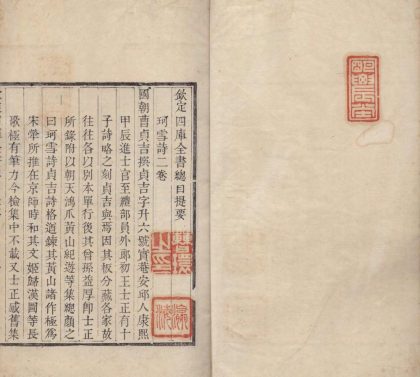 欽定四庫全書總目提要
珂雪詩二卷
國朝曹貞吉撰貞吉字升六號實菴安邱人康熙
甲辰進士官至禮部員外郎初王士正有十
子詩略之刻貞吉與焉因其板分藏各家故
往往各以別本單行後其曾孫益厚卽士正
所錄附以朝天鴻爪黃山紀遊等集總顏之
曰珂雪詩貞吉詩格遒鍊其黃山諸作極爲
宋犖所推在京師時和其文姬歸漢圖等長
歌極有筆力今檢集中不載又士正感舊集